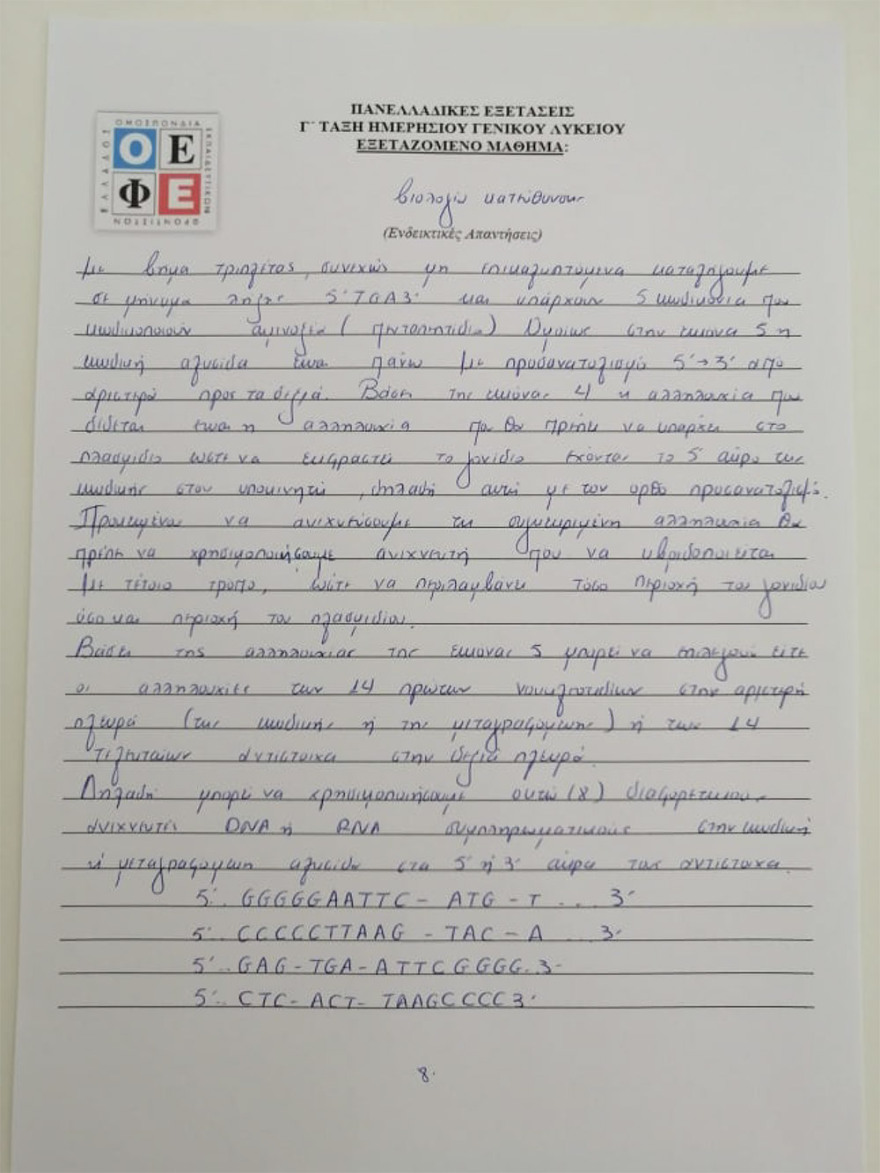 ΟΜΟΣΠΟΝΔΙΑ
ΕΚΠΑΙΔΕΥΤΙΚΩΝ
ΦΡΟΝΤΙΣΤΩΝ
ΕΛΛΑΔΟΣ
Ο Ε
Φ Ε
ΠΑΝΕΛΛΑΔΙΚΕΣ ΕΞΕΤΑΣΕΙΣ
Γ΄ ΤΑΞΗ ΗΜΕΡΗΣΙΟΥ ΓΕΝΙΚΟΥ ΛΥΚΕΙΟΥ
ΕΞΕΤΑΖΟΜΕΝΟ ΜΑΘΗΜΑ:
Βιολογία κατεύθυνσης
(Ενδεικτικές Απαντήσεις)
Με βήμα τριπλέτας, συνεχώς μη επικαλυπτόμενα καταλήγουμε
σε μήνυμα λήξης 5΄TGA3΄ και υπάρχουν 5 κωδικόνια που
κωδικοποιούν αμινοξέα (πενταπεπτίδιο) Ομοίως στην εικόνα 5 η
κωδική αλυσίδα είναι πάνω με προσανατολισμό 5΄→3΄ από
αριστερά προς τα δεξιά. Βάσει της εικόνας 4 η αλληλουχία που
δίδεται είναι η αλληλουχία που θα πρέπει να υπάρχει στο
πλασμίδιο ώστε να εκφραστεί το γονίδιο έχοντας το 5΄ άκρο της
κωδικής στον υποκινητή, δηλαδή αυτή με τον ορθό προσανατολισμό.
Προκειμένου να ανιχνεύσουμε τη συγκεκριμένη αλληλουχία θα
πρέπει να χρησιμοποιήσουμε ανιχνευτή που να υβριδοποιείται
με τέτοιο τρόπο, ώστε να περιλαμβάνει τόσο περιοχή του γονιδίου
όσο και περιοχή του πλασμιδίου.
Βάσει της αλληλουχίας της εικόνας 5 μπορεί να επιλεγούν είτε
οι αλληλουχίες των 14 πρώτων νουκλεοτιδίων στην αριστερή
πλευρά (της κωδικής ή της μεταγραφόμενης) ή των 14
τελευταίων αντίστοιχα στην δεξιά πλευρά.
Δηλαδή μπορεί να χρησιμοποιήσουμε οκτώ (8) διαφορετικούς
ανιχνευτές DNA ή RNA συμπληρωματικούς στην κωδική
ή μεταγραφόμενη αλυσίδα στα 5΄ ή 3΄ άκρα τους αντίστοιχα.
5΄.. GGGGGAATTC - ATG - T ... 3΄
5΄.. CCCCCTTAAG - TAC - A ... 3΄
5΄.. GAG - TGA - ATTCGGGG.. 3΄
5΄.. CTC - ACT - TAAGCCCC 3΄
8.